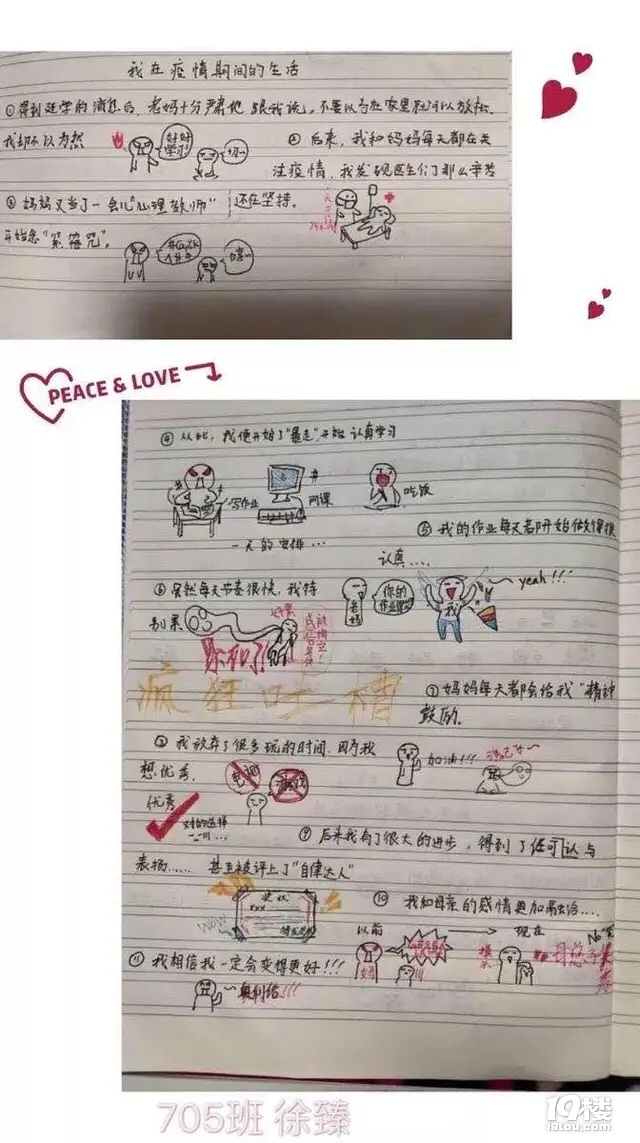 我在疫情期间的生活
①得到延学的消息后,老妈十分严肃地跟我说,不要以为在家里就可以放松、
我却不以为然
好好学习!
切~
②后来,我和妈妈每天都在关
注疫情,我发现医生们那么辛苦
还在坚持。
③妈妈又当了一会儿"心理教师"
开始念"紧箍咒"。
PEACE & LOVE
④从此,我便开始了"暴走",开始认真学习
写作业
网课
吃饭
一天的安排…
⑤我的作业每天都开始做得很
认真……
老妈
你的作业
我
yeah!!!
⑥虽然每天节奏很快,我特
别累
好累
疯狂吐槽
⑦妈妈每天都会给我"精神
鼓励。
加油!!!
⑧我放弃了很多玩的时间,因为我
想优秀.
电视
游戏
优秀
对的选择
⑨后来我有了很大的进步,得到了认可与
表扬…… 甚至被评上了"自律达人"
WOW
奖状
xxx
⑩我和母亲的感情更加融洽……
以前
现在
妈
⑪我相信我一定会变得更好!!!
~奥利给!!!
705班 徐臻
19楼
19lou.com